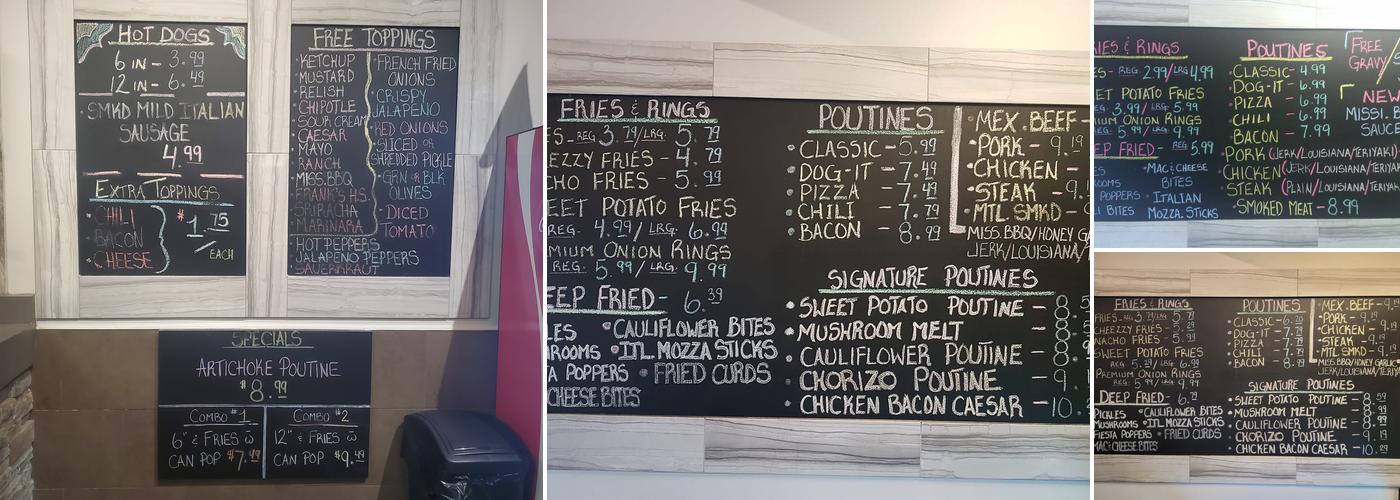 HOT DOGS
6 IN - 3.99
12 IN - 6.49
• SMKD MILD ITALIAN
SAUSAGE
4.99
EXTRA TOPPINGS
• CHILI
BACON
• CHEESE
$1.75
EACH
FREE TOPPINGS
• KETCHUP
• MUSTARD
• RELISH
• CHIPOTLE
• SOUR CREAM
• CAESAR
• MAYO
• RANCH
• MISS. BBQ
• FRANK'S H.S.
• SRIRACHA
• MARINARA
• HOT PEPPERS
• JALAPEÑO PEPPERS
• SAUERKRAUT
• FRENCH FRIED
ONIONS
• CRISPY
JALAPENO
• RED ONIONS
• SLICED OR
SHREDDED PICKLE
• GRN OR BLK
OLIVES
• DICED
TOMATO
SPECIALS
ARTICHOKE POUTINE
$8.99
COMBO #1
6" & FRIES W
CAN POP $7.49
COMBO #2
12" & FRIES W
CAN POP $9.49
FRIES & RINGS
ES - REG 3.79/LRG. 5.79
EEZZY FRIES - 4.79
CHO FRIES - 5.99
EET POTATO FRIES
REG. 4.99/LRG. 6.99
MIUM ONION RINGS
REG. 5.99/LRG. 9.99
EEP FRIED - 6.39
LES • CAULIFLOWER BITES
ROOMS • ITL. MOZZA STICKS
TA POPPERS • FRIED CURDS
CHEESE BITES
POUTINES
• CLASSIC - 5.99
• DOG-IT - 7.49
• PIZZA - 7.49
• CHILI - 7.79
• BACON - 8.99
• MEX. BEEF -
• PORK - 9.19
• CHICKEN -
• STEAK - 9.
• MTL SMKD -
MISS. BBQ/HONEY GA
JERK/LOUISIANA/
SIGNATURE POUTINES
• SWEET POTATO POUTINE - 8.5
• MUSHROOM MELT - 8.
• CAULIFLOWER POUTINE - 8.
• CHORIZO POUTINE - 9.
• CHICKEN BACON CAESAR - 10.
RIES & RINGS
ES - REG 2.99/LRG 4.99
EET POTATO FRIES
REG. 3.99/LRG 5.99
MIUM ONION RINGS
REG. 5.99/LRG. 9.99
EEP FRIED - REG 5.99
• MAC & CHEESE
ROOMS BITES
POPPERS • ITALIAN
LI BITES MOZZA. STICKS
POUTINES
• CLASSIC - 4.99
• DOG-IT - 6.99
• PIZZA - 6.99
• CHILI - 6.99
• BACON - 7.99
• PORK (JERK/LOUISIANA/TERIYAKI)
CHICKEN (JERK/LOUISIANA/TERIYA
STEAK (PLAIN/LOUISIANA/TERIYAK
• SMOKED MEAT - 8.99
FREE
GRAVY
NEW
MISSI. B
SAUC
FRIES & RINGS
FRIES - REG 3.79/LRG 5.79
CHEEZZY FRIES - 5.29
NACHO FRIES - 5.99
SWEET POTATO FRIES
REG. 5.29/LRG. 6.99
PREMIUM ONION RINGS
REG. 5.99/LRG. 9.99
DEEP FRIED - 6.
PICKLES • CAULIFLOWER BITES
MUSHROOMS • ITL. MOZZA STICKS
FIESTA POPPERS • FRIED CURDS
MAC & CHEESE BITES
POUTINES
• CLASSIC - 6.
• DOG-IT - 7.79
• PIZZA - 7.79
• CHILI - 7.
• BACON - 8.99
• MEX. BEEF - 9.
• PORK - 9.19
• CHICKEN - 9.
• STEAK - 9.19
• MTL. SMKD - 9.19
MISS BBQ/HONEY GARLIC
JERK/LOUISIANA/TERIYA
SIGNATURE POUTINES
• SWEET POTATO POUTINE - 8.59
• MUSHROOM MELT - 8.99
• CAULIFLOWER POUTINE - 8.99
• CHORIZO POUTINE - 9.19
• CHICKEN BACON CAESAR - 10.